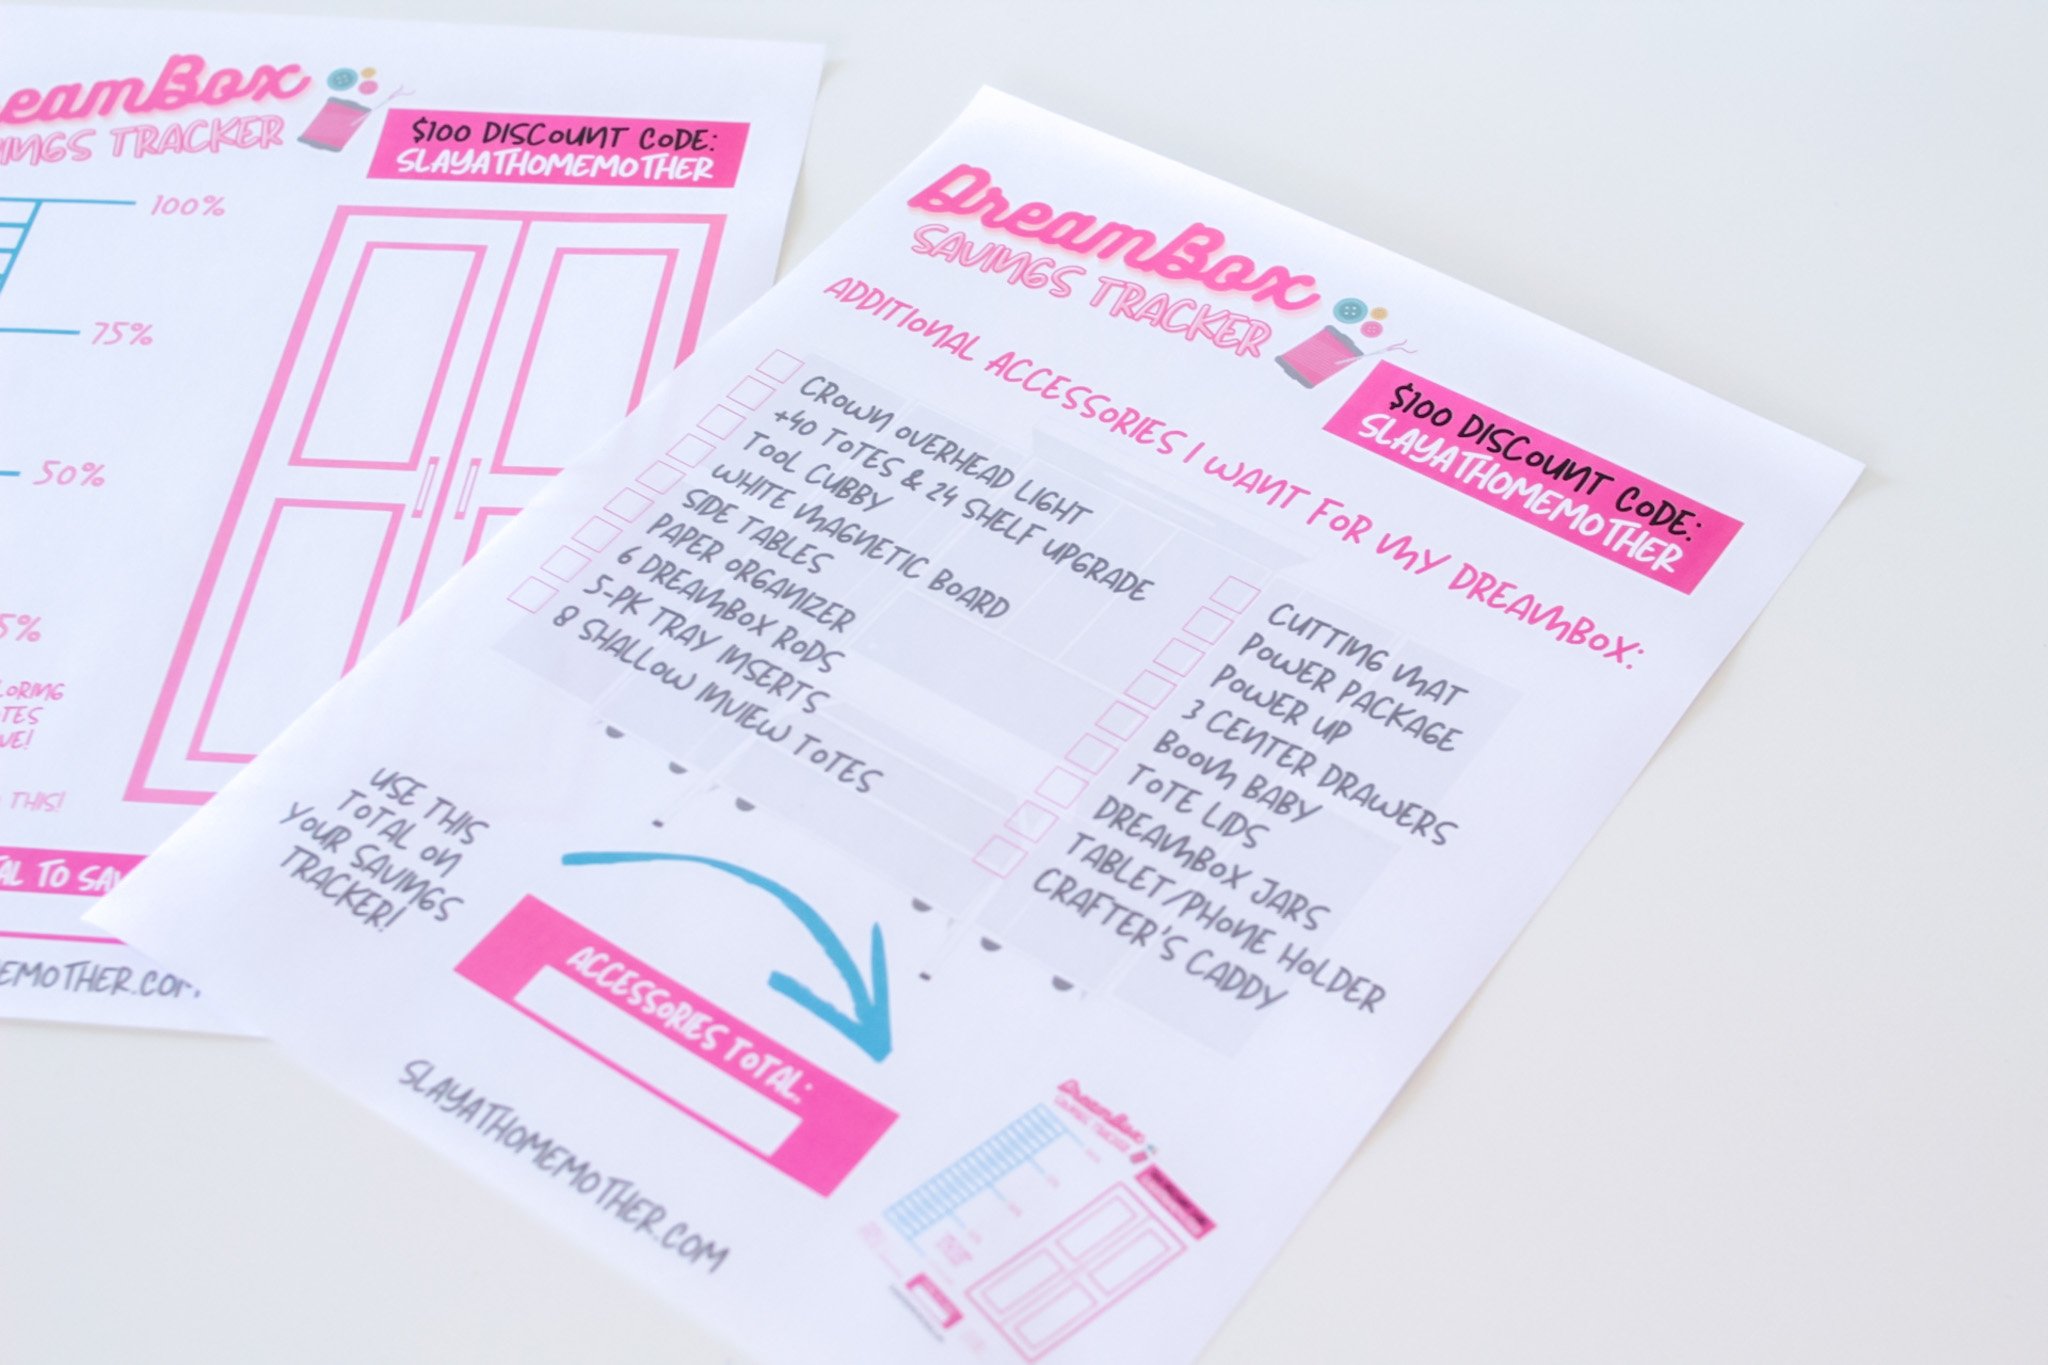 DreamBox
SAVINGS TRACKER
$100 DISCOUNT CODE:
SLAYATHOMEMOTHER
ADDITIONAL ACCESSORIES I WANT FOR MY DREAMBOX:
CROWN OVERHEAD LIGHT
+40 TOTES & 24 SHELF UPGRADE
TOOL CUBBY
WHITE MAGNETIC BOARD
SIDE TABLES
PAPER ORGANIZER
6 DREAMBOX RODS
5-PK TRAY INSERTS
8 SHALLOW INVIEW TOTES
CUTTING MAT
POWER PACKAGE
POWER UP
3 CENTER DRAWERS
BOOM BABY
TOTE LIDS
DREAMBOX JARS
TABLET/PHONE HOLDER
CRAFTER'S CADDY
USE THIS
TOTAL ON
YOUR SAVINGS
TRACKER!
ACCESSORIES TOTAL:
SLAYATHOMEMOTHER.COM
DreamBox
SAVINGS TRACKER
eamBox
INGS TRACKER
$100 DISCOUNT CODE:
SLAYATHOMEMOTHER
100%
75%
50%
5%
LORING
TES
VE!
THIS!
AL TO SAV
EMOTHER.COM